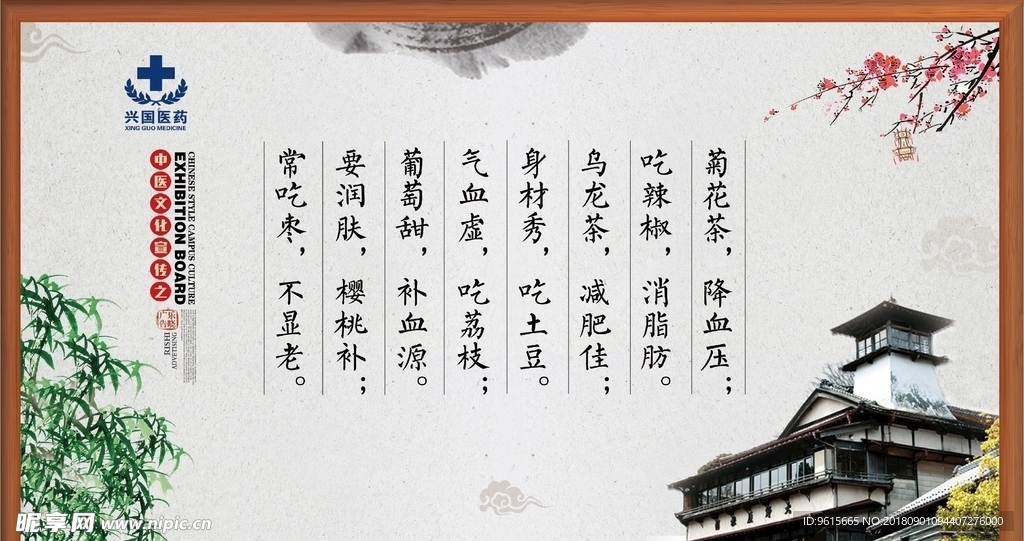 菊花茶，降血压；
吃辣椒，消脂肪。
乌龙茶，减肥佳；
身材秀，吃土豆。
气血虚，吃荔枝；
葡萄甜，补血源。
要润肤，樱桃补；
常吃枣，不显老。
兴国医药
XING GUO MEDICINE
CHINESE STYLE CAMPUS CULTURE
EXHIBITION BOARD
中医文化宣传之
RISHI
ADVERTISING
昵享网 www.nipic.cn
ID:9615665 NO:20180901094407276000